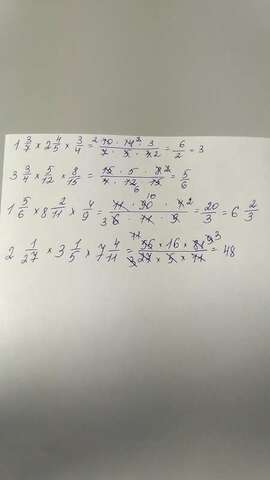 1 3/7 × 2 4/5 × 3/4 = 10 · 14 · 3 / 7 · 5 · 4 = 6/2 = 3
3 3/4 × 5/12 × 8/15 = 15 · 5 · 8 / 4 · 12 · 15 = 5/6
1 5/6 × 8 2/11 × 4/9 = 11 · 90 · 4 / 6 · 11 · 9 = 20/3 = 6 2/3
2 1/27 × 3 1/5 × 7 4/11 = × 16 × 81 / 27 × 5 × 11 = 48